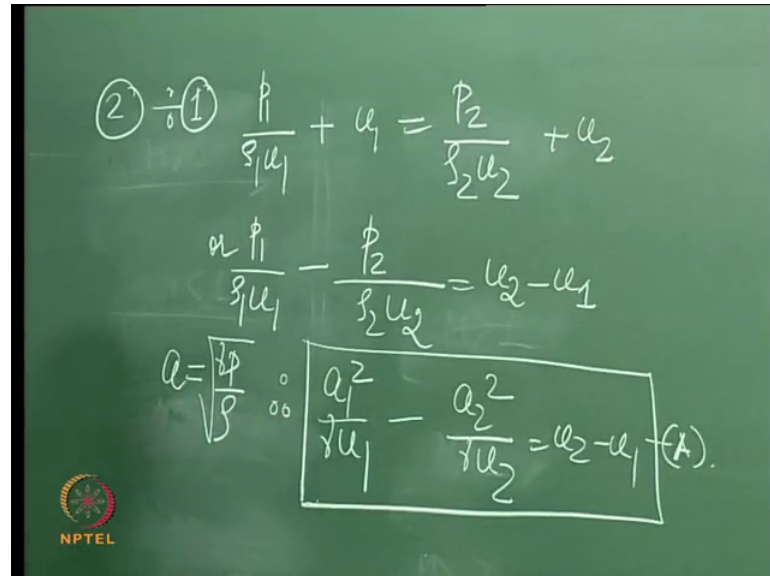 ② ÷ ① p₁/ρ₁u₁ + u₁ = p₂/ρ₂u₂ + u₂
or p₁/ρ₁u₁ − p₂/ρ₂u₂ = u₂ − u₁
a = √(γp/ρ) ∴ a₁²/γu₁ − a₂²/γu₂ = u₂ − u₁ –(A).
NPTEL